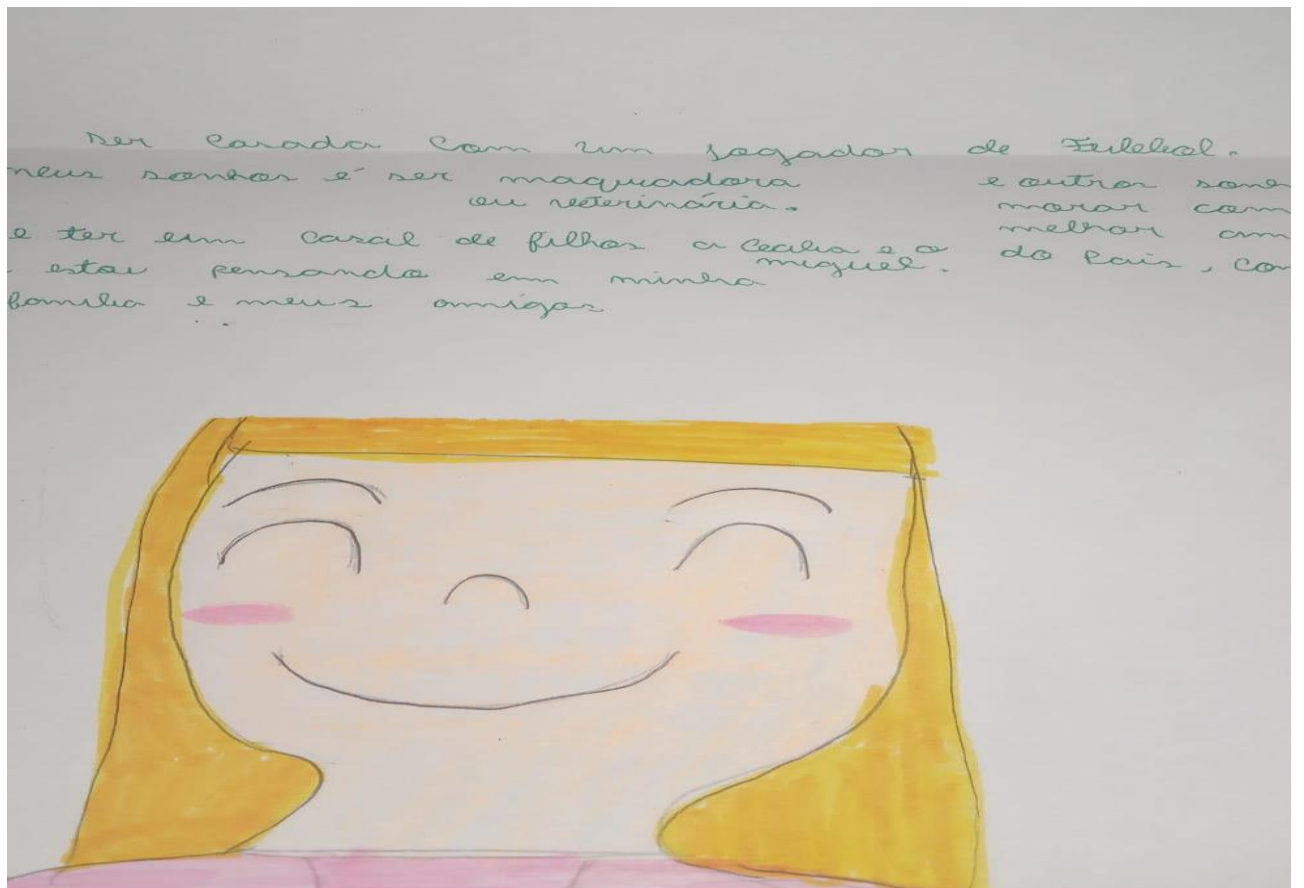 ser casada com um jogador de Futebol.
meus sonhos é ser maquiadora
ou veterinária.
e ter um casal de filhos a Cecilia e o
miguel.
estou pensando em minha
familia e meus amigos
e outros
morar com
melhor
do Pais,